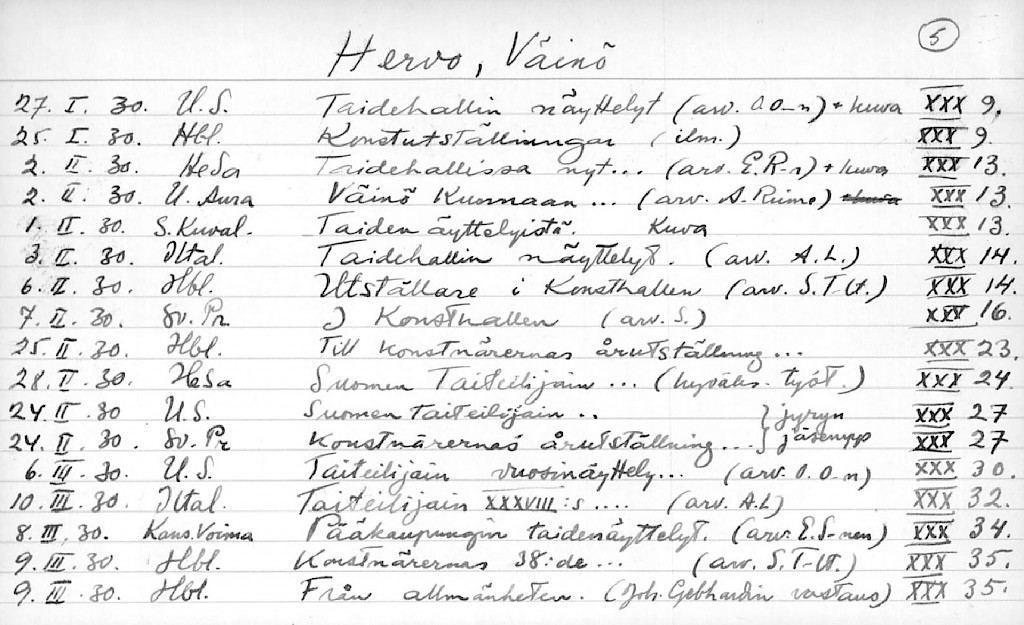 5
Hervo, Väinö
27. I. 30. U.S. Taidehallin näyttelyt (arv. O.O-n) + kuva XXX 9.
25. I. 30. Hbl. Konstutställningar (ilm.) XXX 9.
2. II. 30. HeSa Taidehallissa nyt... (arv. E.R-r) + kuva XXX 13.
2. II. 30. U. Aura Väinö Kunnaan ... (arv. A. Riime) XXX 13.
1. II. 30. S. Kuval. Taidenäyttelyistä. Kuva XXX 13.
3. II. 30. Iltal. Taidehallin näyttelyt. (arv. A.L.) XXX 14.
6. II. 30. Hbl. Utställare i Konsthallen (arv. S.T-lt.) XXX 14.
7. II. 30. Sv. Pr I Konsthallen (arv. S.) XXX 16.
25. II. 30. Hbl. Till konstnärernas årutställning ... XXX 23.
28. II. 30. HeSa Suomen Taiteilijain ... (hyväks. työt.) XXX 24.
24. II. 30 U.S. Suomen taiteilijain .. } jyryn XXX 27
24. II. 30 Sv. Pr Konstnärernas årutställning ... } jäsenpp XXX 27
6. III. 30. U.S. Taiteilijain vuosinäyttely... (arv. O.O-n) XXX 30.
10. III. 30. Iltal. Taiteilijain XXXVIII:s .... (arv. A.L) XXX 32.
8. III. 30. Kans. Voima Pääkaupungin taidenäyttelyt. (arv. E.S-nen) XXX 34.
9. III. 30. Hbl. Konstnärernas 38:de ... (arv. S.T-lt.) XXX 35.
9. III. 30. Hbl. Från allmänheten. (Joh. Gebhardin vastaus) XXX 35.